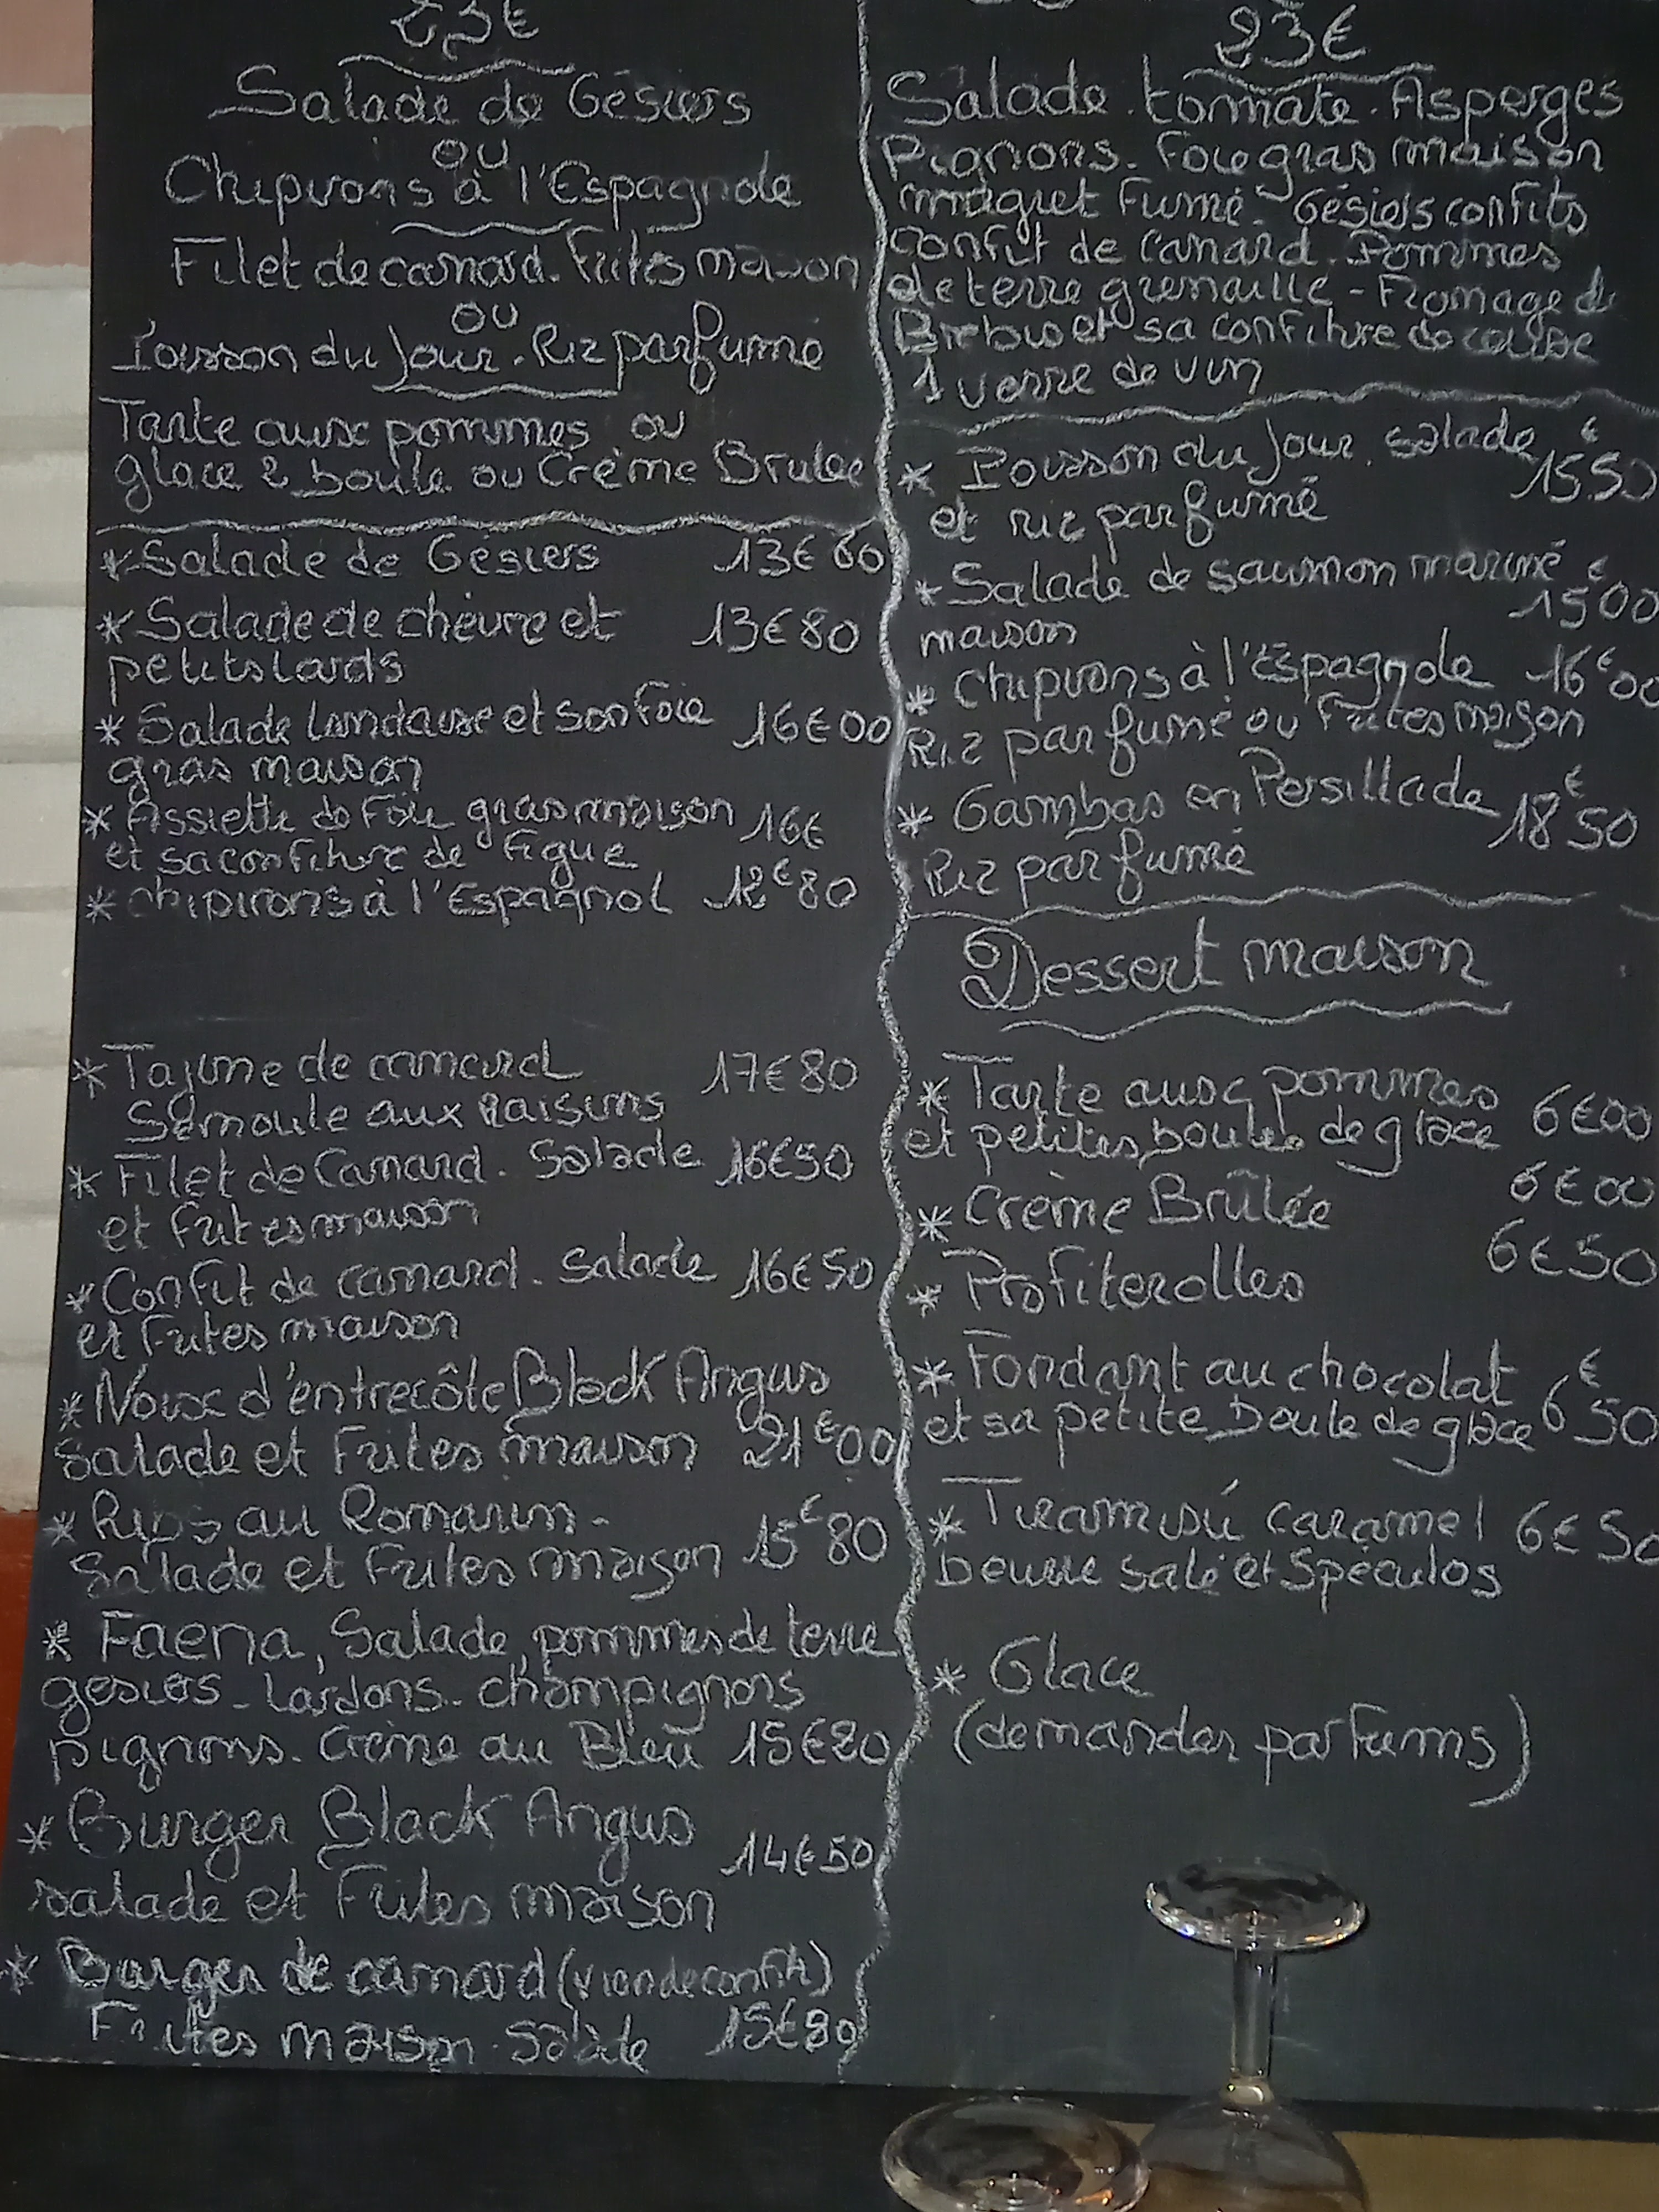 23€
Salade de Gésiers
ou
Chipirons à l'Espagnole
Filet de canard. Frites maison
ou
Poisson du Jour. Riz parfumé
Tarte aux pommes ou
glace 2 boule ou Crème Brulée
*Salade de Gésiers 13€60
*Salade de chèvre et 13€80
petits lards
*Salade landaise et son foie 16€00
gras maison
*Assiette de Foie gras maison 16€
et sa confiture de Figue
*chipirons à l'Espagnol 12€80
*Tajine de canard 17€80
Semoule aux Raisins
*Filet de Canard. Salade 16€50
et frites maison
*Confit de canard. Salade 16€50
et Frites maison
*Noix d'entrecôte Black Angus
Salade et Frites maison 21€00
*Rips au Romarin.
Salade et Frites maison 15€80
*Faena, Salade, pommes de terre
gesiers - lardons - champignons
pignons. Crème au Bleu 15€20
*Burger Black Angus
14€50
salade et Frites maison
*Burger de canard (viande confit)
Frites maison. Salade 15€80
23€
Salade. tomate. Asperges
Pignons. Foie gras maison
magret Fumé. Gésiers confits
Confit de Canard. Pommes
de terre grenaille - Fromage de
Brebis et sa confiture de cerise
1 verre de vin
*Poisson du Jour. Salade € 1550
et riz parfumé
*Salade de saumon mariné € 1500
maison
*Chipirons à l'Espagnole 16€00
Riz parfumé ou Frites maison
*Gambas en Persillade 18€50
Riz parfumé
Dessert maison
*Tarte aux pommes 6€00
et petites boules de glace
*Crème Brûlée 6€00
*Profiterolles 6€50
*Fondant au chocolat
et sa petite boule de glace 6€50
*Tiramisú caramel 6€50
beurre salé et Spéculos
*Glace
(demander parfums)